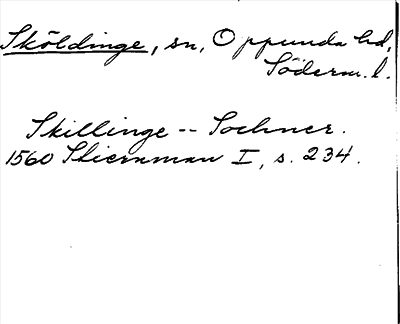 Sköldinge, sn, Oppunda hd,
Söderm. l.
Skillinge -- Sochner.
1560 Stiernman I, s. 234.